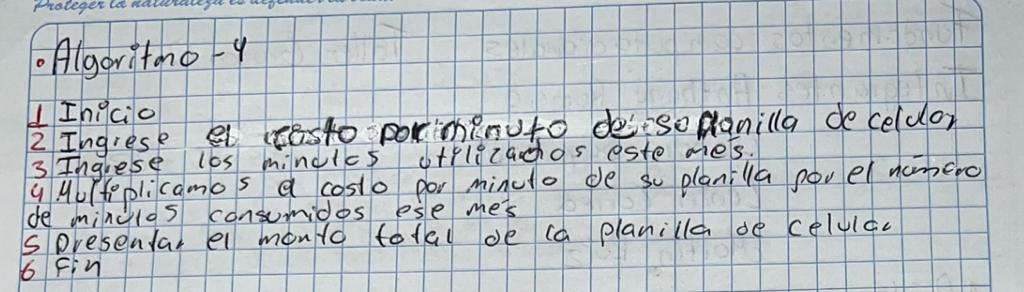 Proteger la naturaleza es
• Algoritmo - 4
1 Inicio
2 Ingrese el costo por minuto de su planilla de celular
3 Ingrese los minutos utilizados este mes.
4 Multiplicamos el costo por minuto de su planilla por el número
de minutos consumidos ese mes
5 Presentar el monto total de la planilla de celular
6 Fin